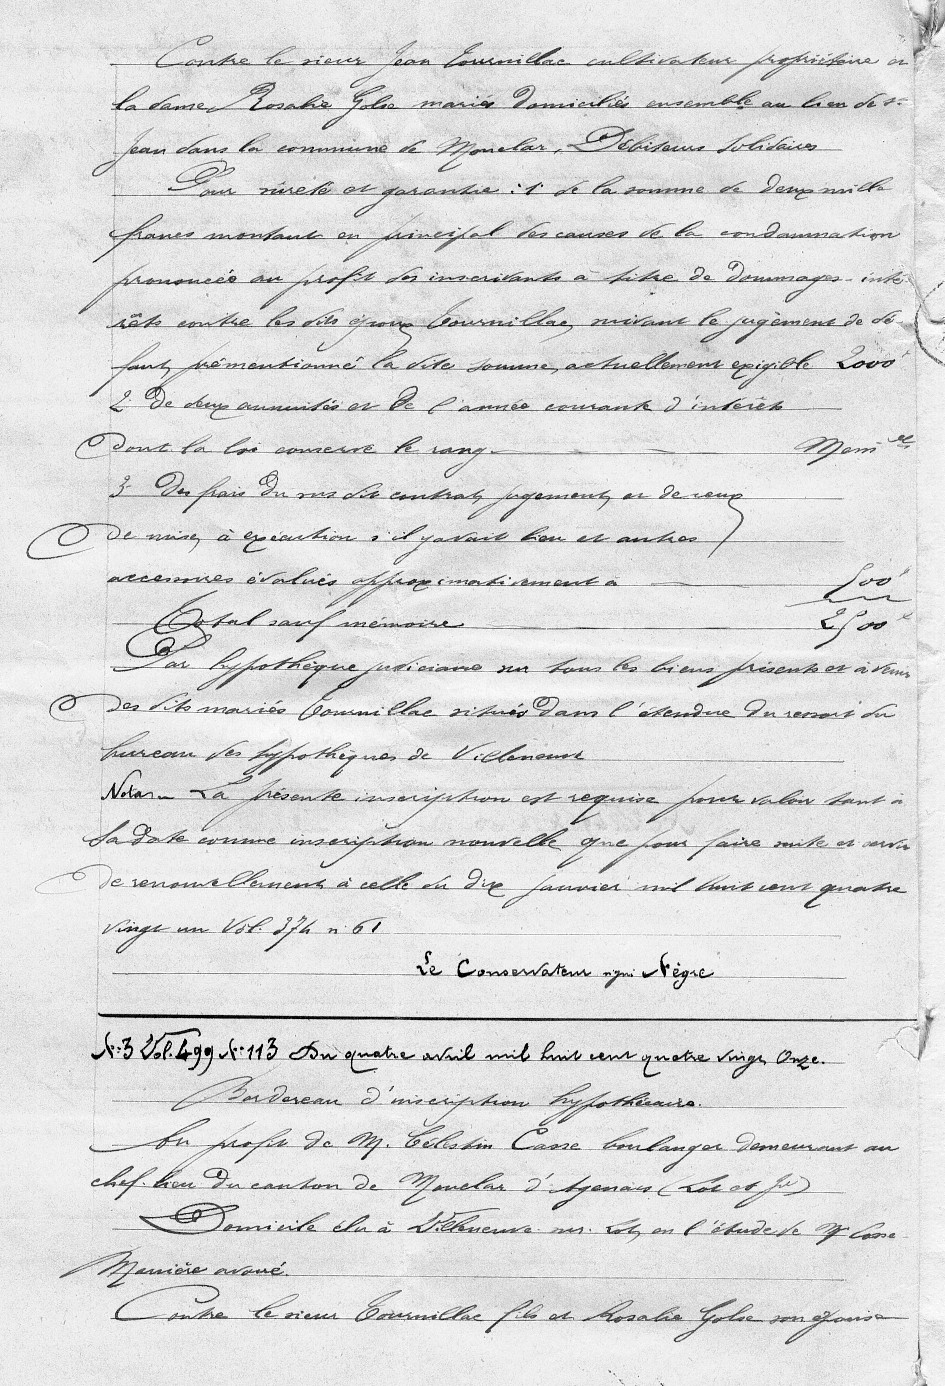 Contre le sieur Jean Tournillac cultivateur propriétaire et
la dame Rosalie Golse mariés domiciliés ensemble au lieu de St
Jean dans la commune de Monclar, Débiteurs solidaires
Pour sûreté et garantie : 1° de la somme de deux mille
francs montant en principal des causes de la condamnation
prononcée au profit des inscrivants à titre de dommages-inté-
rêts contre les dits époux Tournillac, suivant le jugement de dé-
faut, prémentionné la dite somme, actuellement exigible 2000f
2° De deux annuités et de l'année courante d'intérêts
dont la loi conserve le rang. Mem
3° Des frais du sus dit contrat, jugement, et de ceux
de mise à exécution s'il y avait lieu et autres
accessoires évalués approximativement à 500f
Total sauf mémoire 2500f
Par hypothèque judiciaire sur tous les biens présents et à venir
des dits mariés Tournillac situés dans l'étendue du ressort du
bureau des hypothèques de Villeneuve
Nota. La présente inscription est requise pour valoir tant à
sa date comme inscription nouvelle, que pour faire suite et servir
de renouvellement à celle du dix janvier mil huit cent quatre
vingt un Vol. 374 n° 61
Le Conservateur signé Nègre
N° 3 Vol. 499 N° 113 Du quatre avril mil huit cent quatre vingt Onze.
Bordereau d'inscription hypothécaire.
Au profit de M. Célestin Casse boulanger demeurant au
chef-lieu du canton de Monclar d'Agenais (Lot et Gne)
Domicile élu à Villeneuve sur Lot, en l'étude de Me
avoué.
Contre le sieur Tournillac fils et Rosalie Golse son épouse